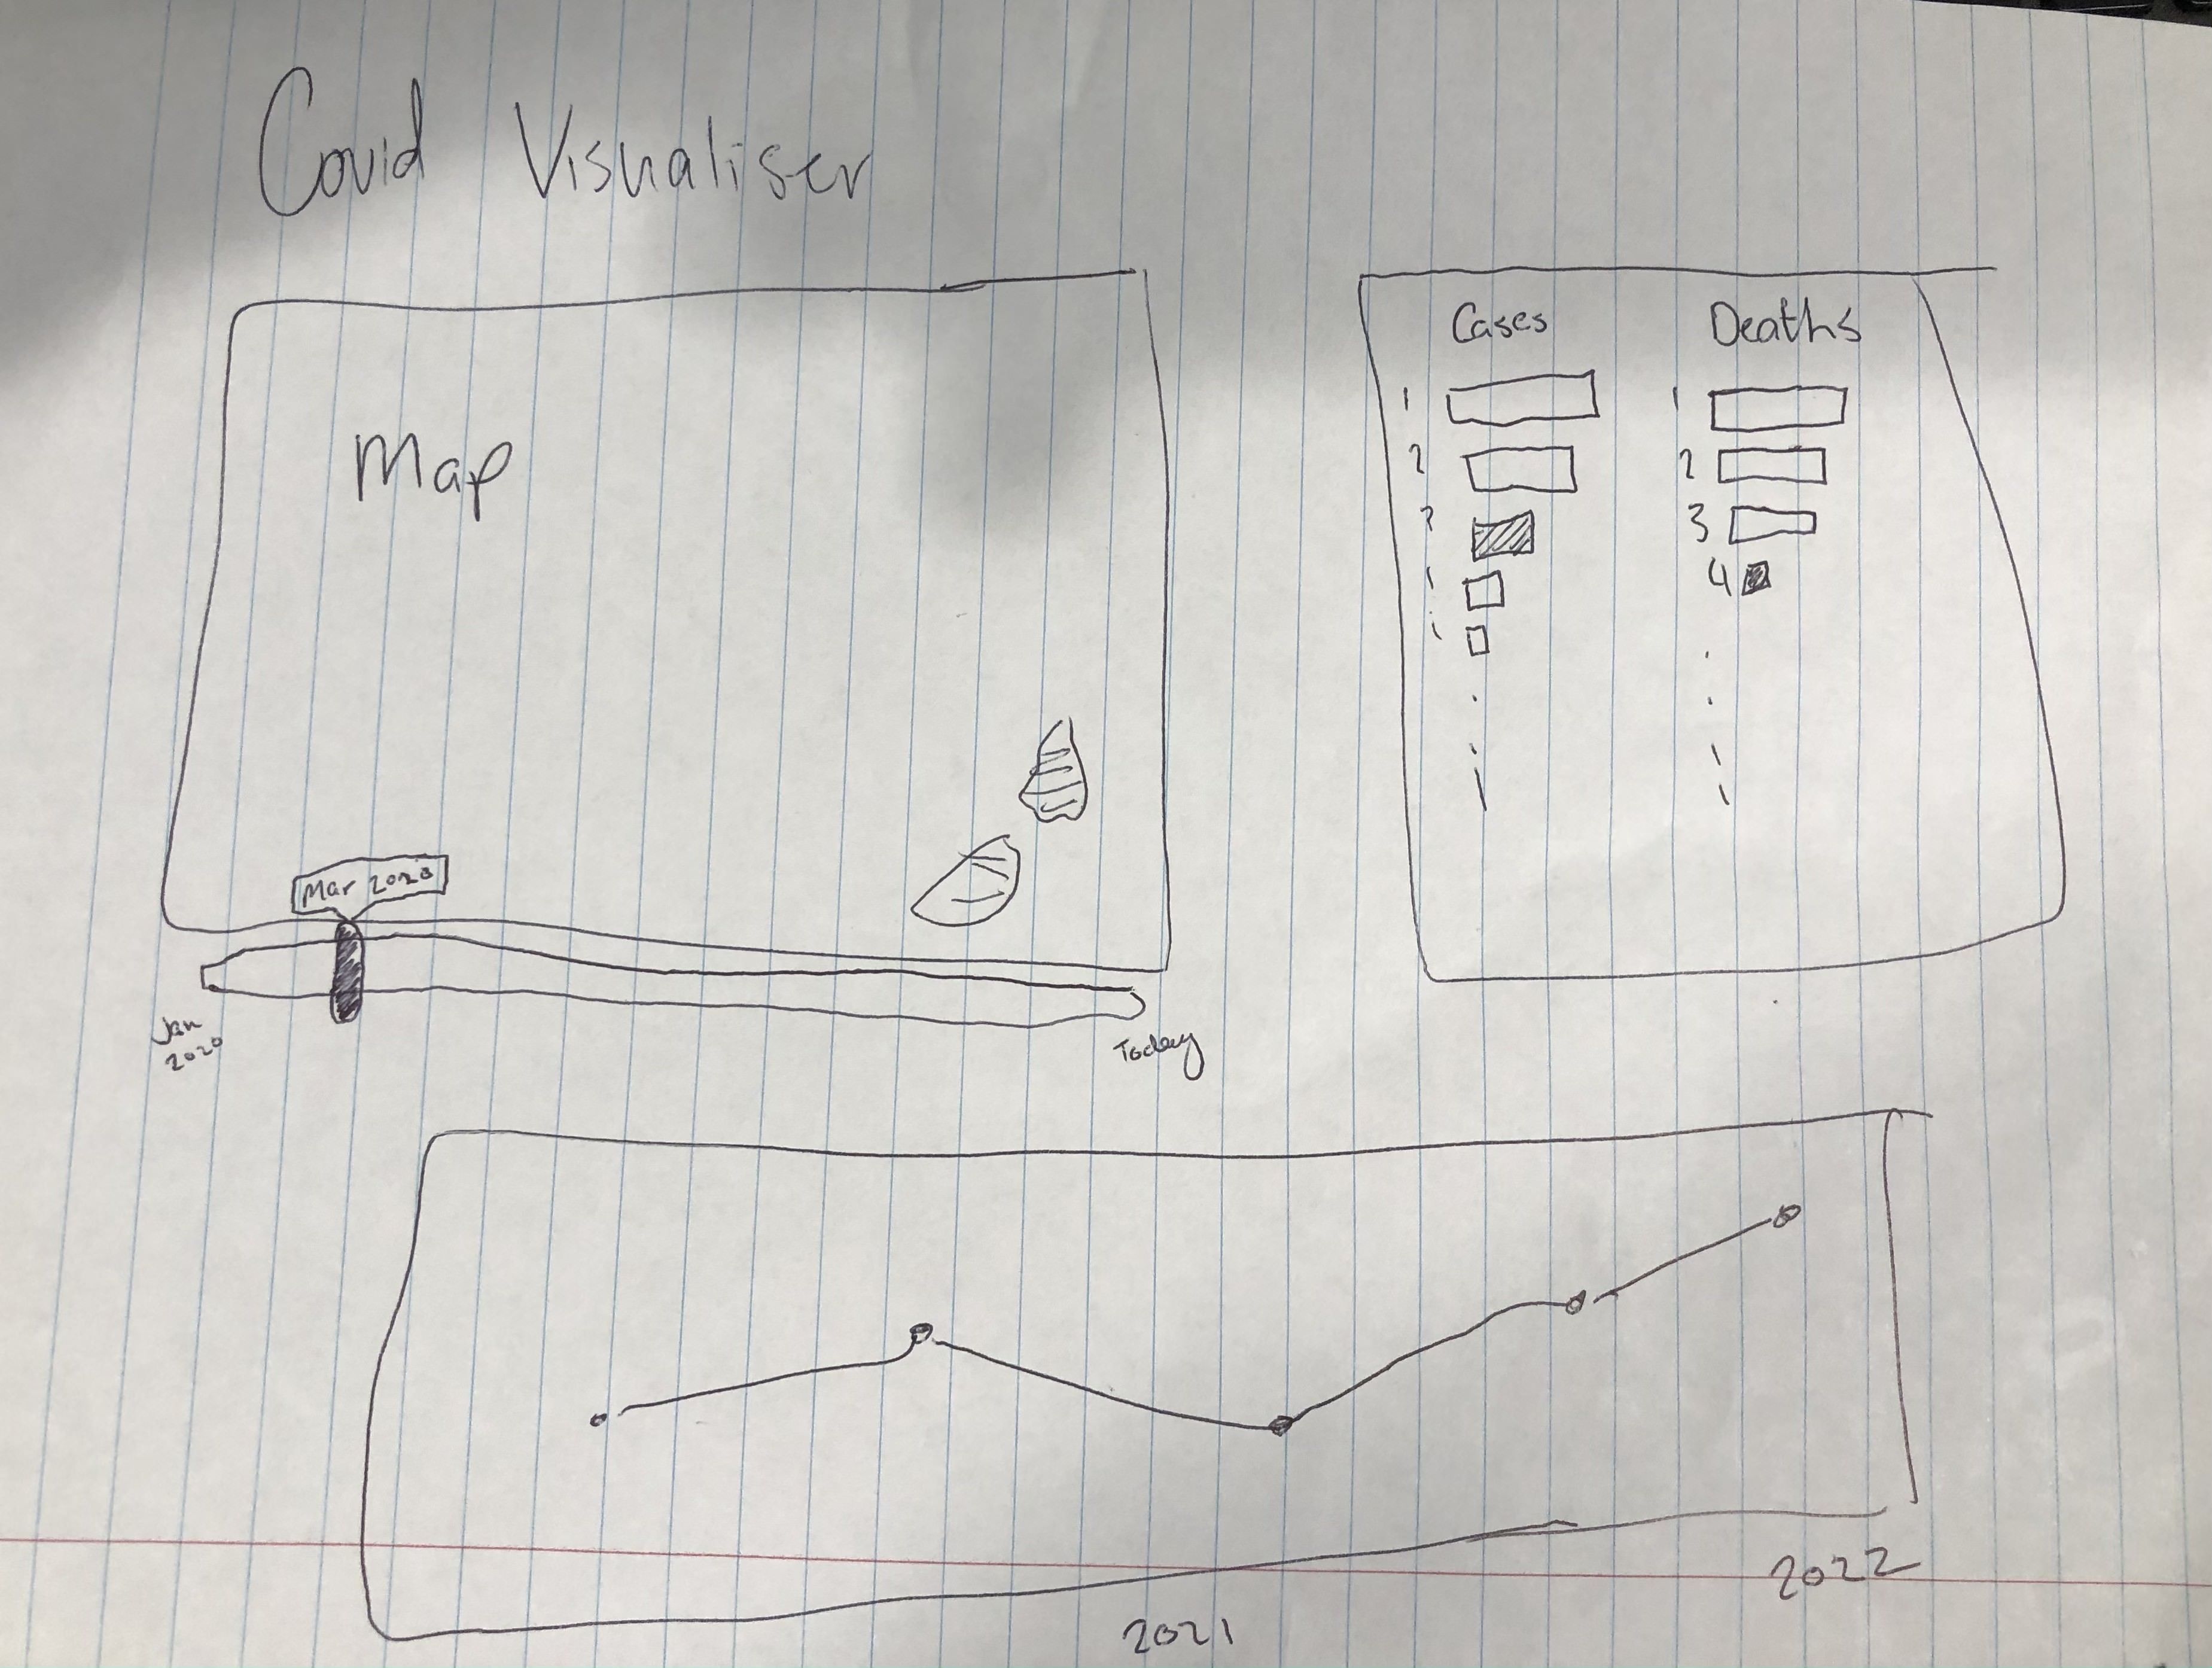 Covid Visualiser
Map
Mar 2020
Jan
2020
Today
Cases Deaths
1 1
2 2
3
4
2021
2022